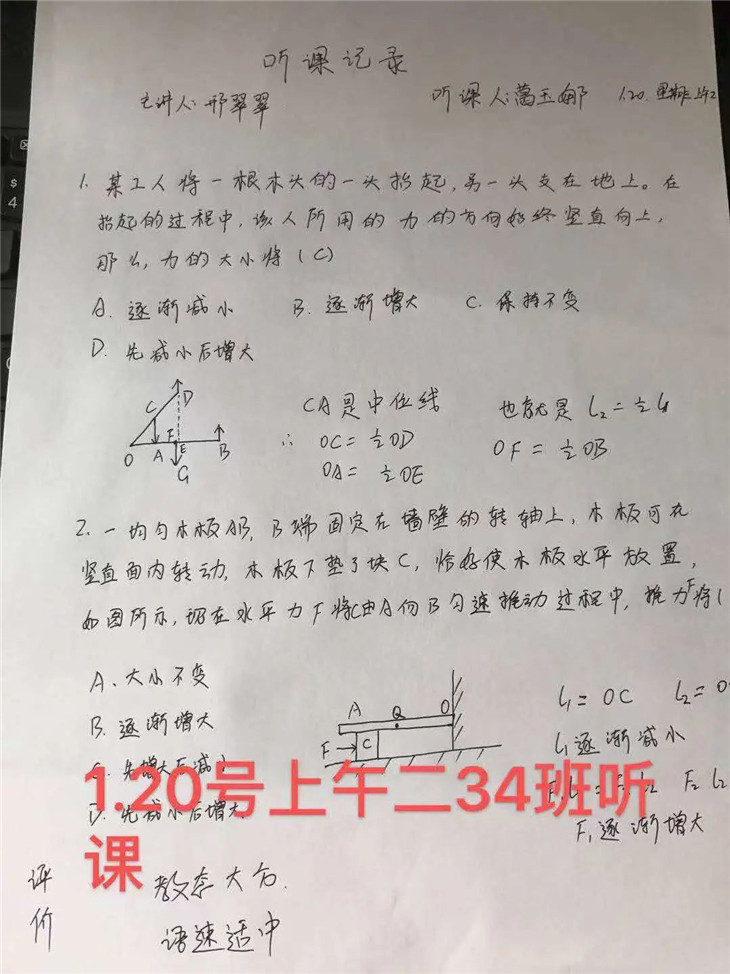 听课记录
主讲人:邢翠翠 听课人:葛玉娜 1.20.
1. 某工人将一根木头的一头抬起,另一头支在地上。在
抬起的过程中,该人所用的力的方向始终竖直向上,
那么,力的大小将(C)
A. 逐渐减小 B. 逐渐增大 C. 保持不变
D. 先减小后增大
CA是中位线 也就是 l₂=½l₁
∴ OC=½OD OF=½OB
OA=½OE
O A F E B C D G
2. 一均匀木板AB,B端固定在墙壁的转轴上,木板可在
竖直面内转动,木板下垫了块C,恰好使木板水平放置,
如图所示,现在水平力F将C由A向B匀速推动过程中,推力F将(
A. 大小不变
B. 逐渐增大
C. 先增大后减小
D. 先减小后增大
A Q O
F C
l₁=OC l₂=O
l₁逐渐减小
F₂ l₂
F₁逐渐增大
1.20号上午二34班听
课
评价
教态大方.
语速适中